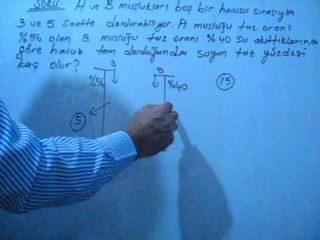 SORU: A ve B muslukları boş bir havuzu sırasıyla
3 ve 5 saatte doldurabiliyor. A musluğu tuz oranı
%56 olan B musluğu tuz oranı %40 su akıttıklarına
göre havuz tam dolduğunda suyun tuz yüzdesi
kaç olur?
3
B
15
%56
%40
5